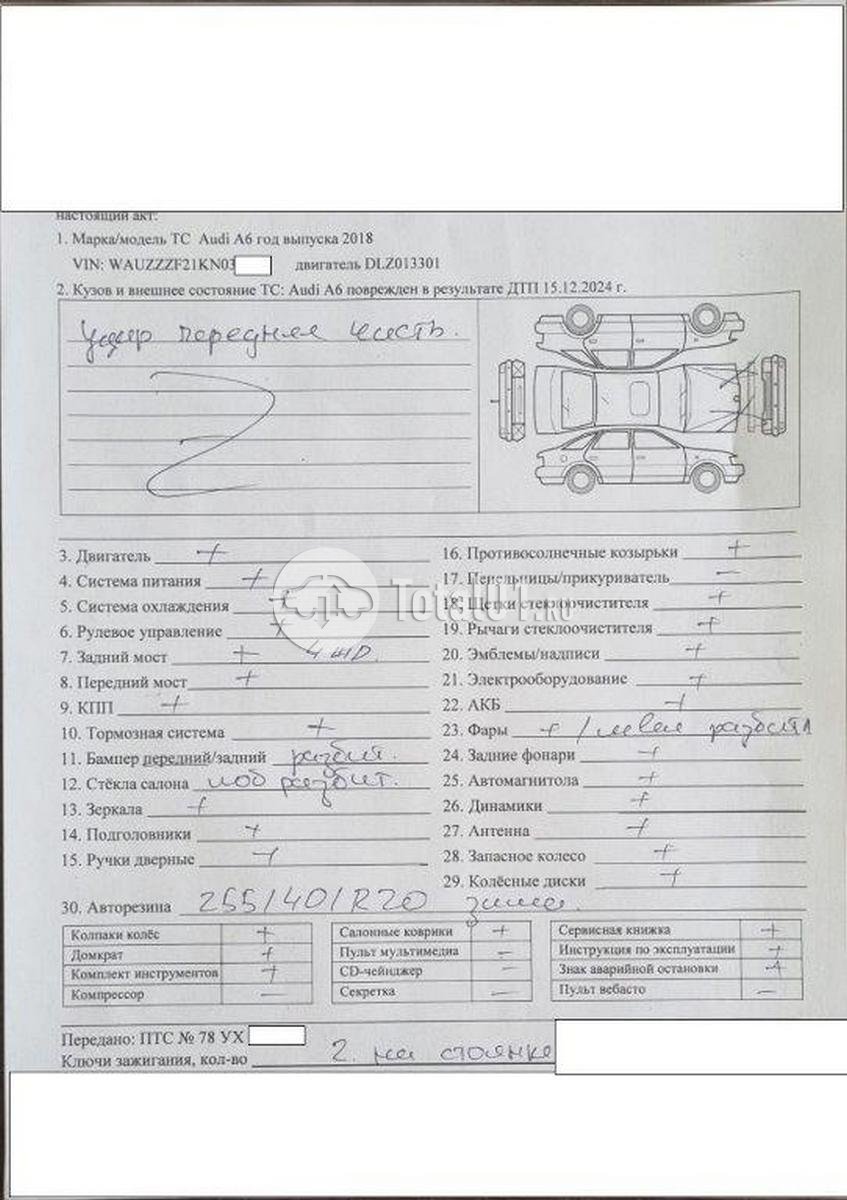 настоящий акт:
1. Марка/модель ТС Audi A6 год выпуска 2018
VIN: WAUZZZF21KN03 двигатель DLZ013301
2. Кузов и внешнее состояние ТС: Audi A6 поврежден в результате ДТП 15.12.2024 г.
Удар передняя часть.
3. Двигатель +
4. Система питания +
5. Система охлаждения +
6. Рулевое управление +
7. Задний мост + 4 WD.
8. Передний мост +
9. КПП +
10. Тормозная система +
11. Бампер передний/задний разбит.
12. Стёкла салона лоб разбит.
13. Зеркала +
14. Подголовники +
15. Ручки дверные +
16. Противосолнечные козырьки +
17. Пепельницы/прикуриватель –
18. Щетки стеклоочистителя +
19. Рычаги стеклоочистителя +
20. Эмблемы/надписи +
21. Электрооборудование +
22. АКБ +
23. Фары + / левая разбита
24. Задние фонари +
25. Автомагнитола +
26. Динамики +
27. Антенна +
28. Запасное колесо +
29. Колёсные диски +
Total01.RU
30. Авторезина 255/40/R20 зима.
Колпаки колёс +
Домкрат +
Комплект инструментов +
Компрессор –
Салонные коврики +
Пульт мультимедиа –
CD-чейнджер –
Секретка –
Сервисная книжка +
Инструкция по эксплуатации +
Знак аварийной остановки +
Пульт вебасто –
Передано: ПТС № 78 УХ
Ключи зажигания, кол-во 2. на стоянке